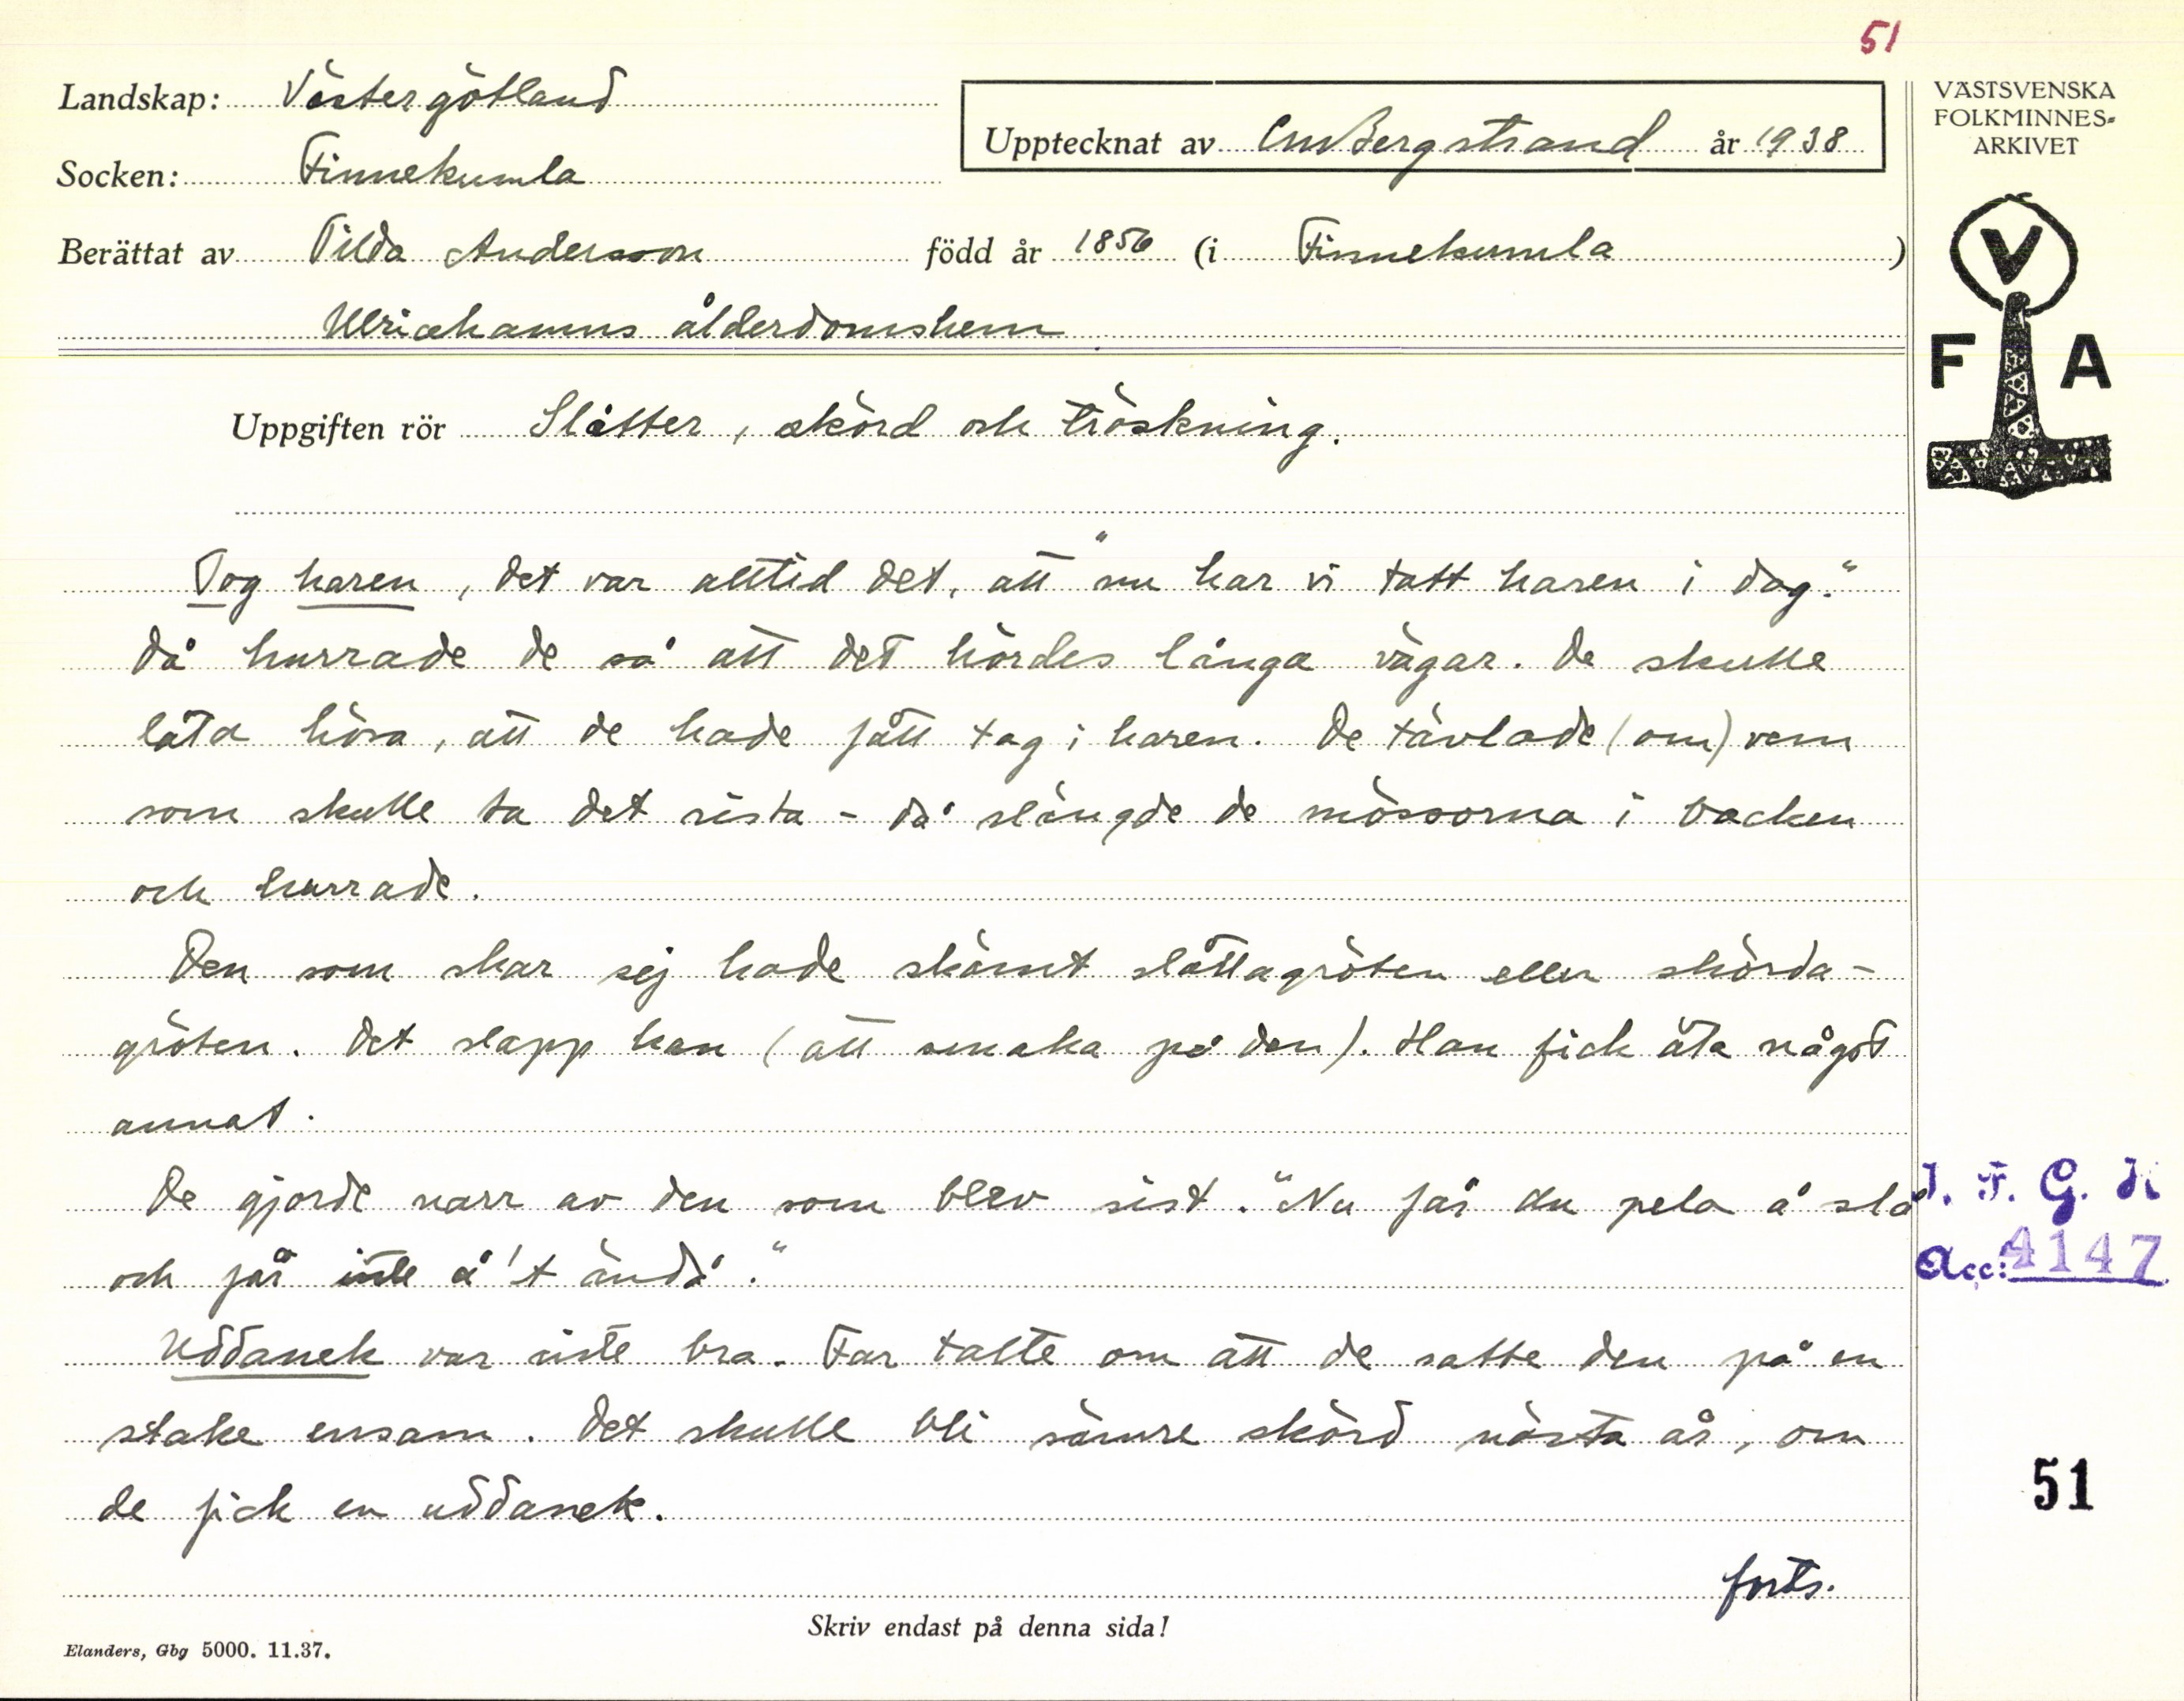 51
Landskap: Västergötland
Socken: Finnekumla
Upptecknat av CM Bergstrand år 1938
Berättat av Tilda Andersson född år 1856 (i Finnekumla)
Ulricehamns ålderdomshem
VÄSTSVENSKA
FOLKMINNES-
ARKIVET
V
F A
Uppgiften rör Slåtter, skörd och tröskning.
Tog haren, det var alltid det, att "nu har vi tatt haren i dag."
Då hurrade de så att det hördes långa vägar. De skulle
låta höra, att de hade fått tag i haren. De tävlade (om) vem
som skulle ta det sista - då slängde de mössorna i backen
och hurrade.
Den som skar sej hade skämt slåttagröten eller skörda-
gröten. Det slapp han (att smaka på den). Han fick äta något
annat.
De gjorde narr av den som blev sist. "Nu får du pela å slå
och får inte å't ändå."
Uddanek var inte bra. Far talte om att de satte den på en
stake ensam. Det skulle bli sämre skörd nästa år, om
de fick en uddanek.
forts.
I. F. G. H.
Acc: 4147
51
Skriv endast på denna sida!
Elanders, Gbg 5000. 11.37.